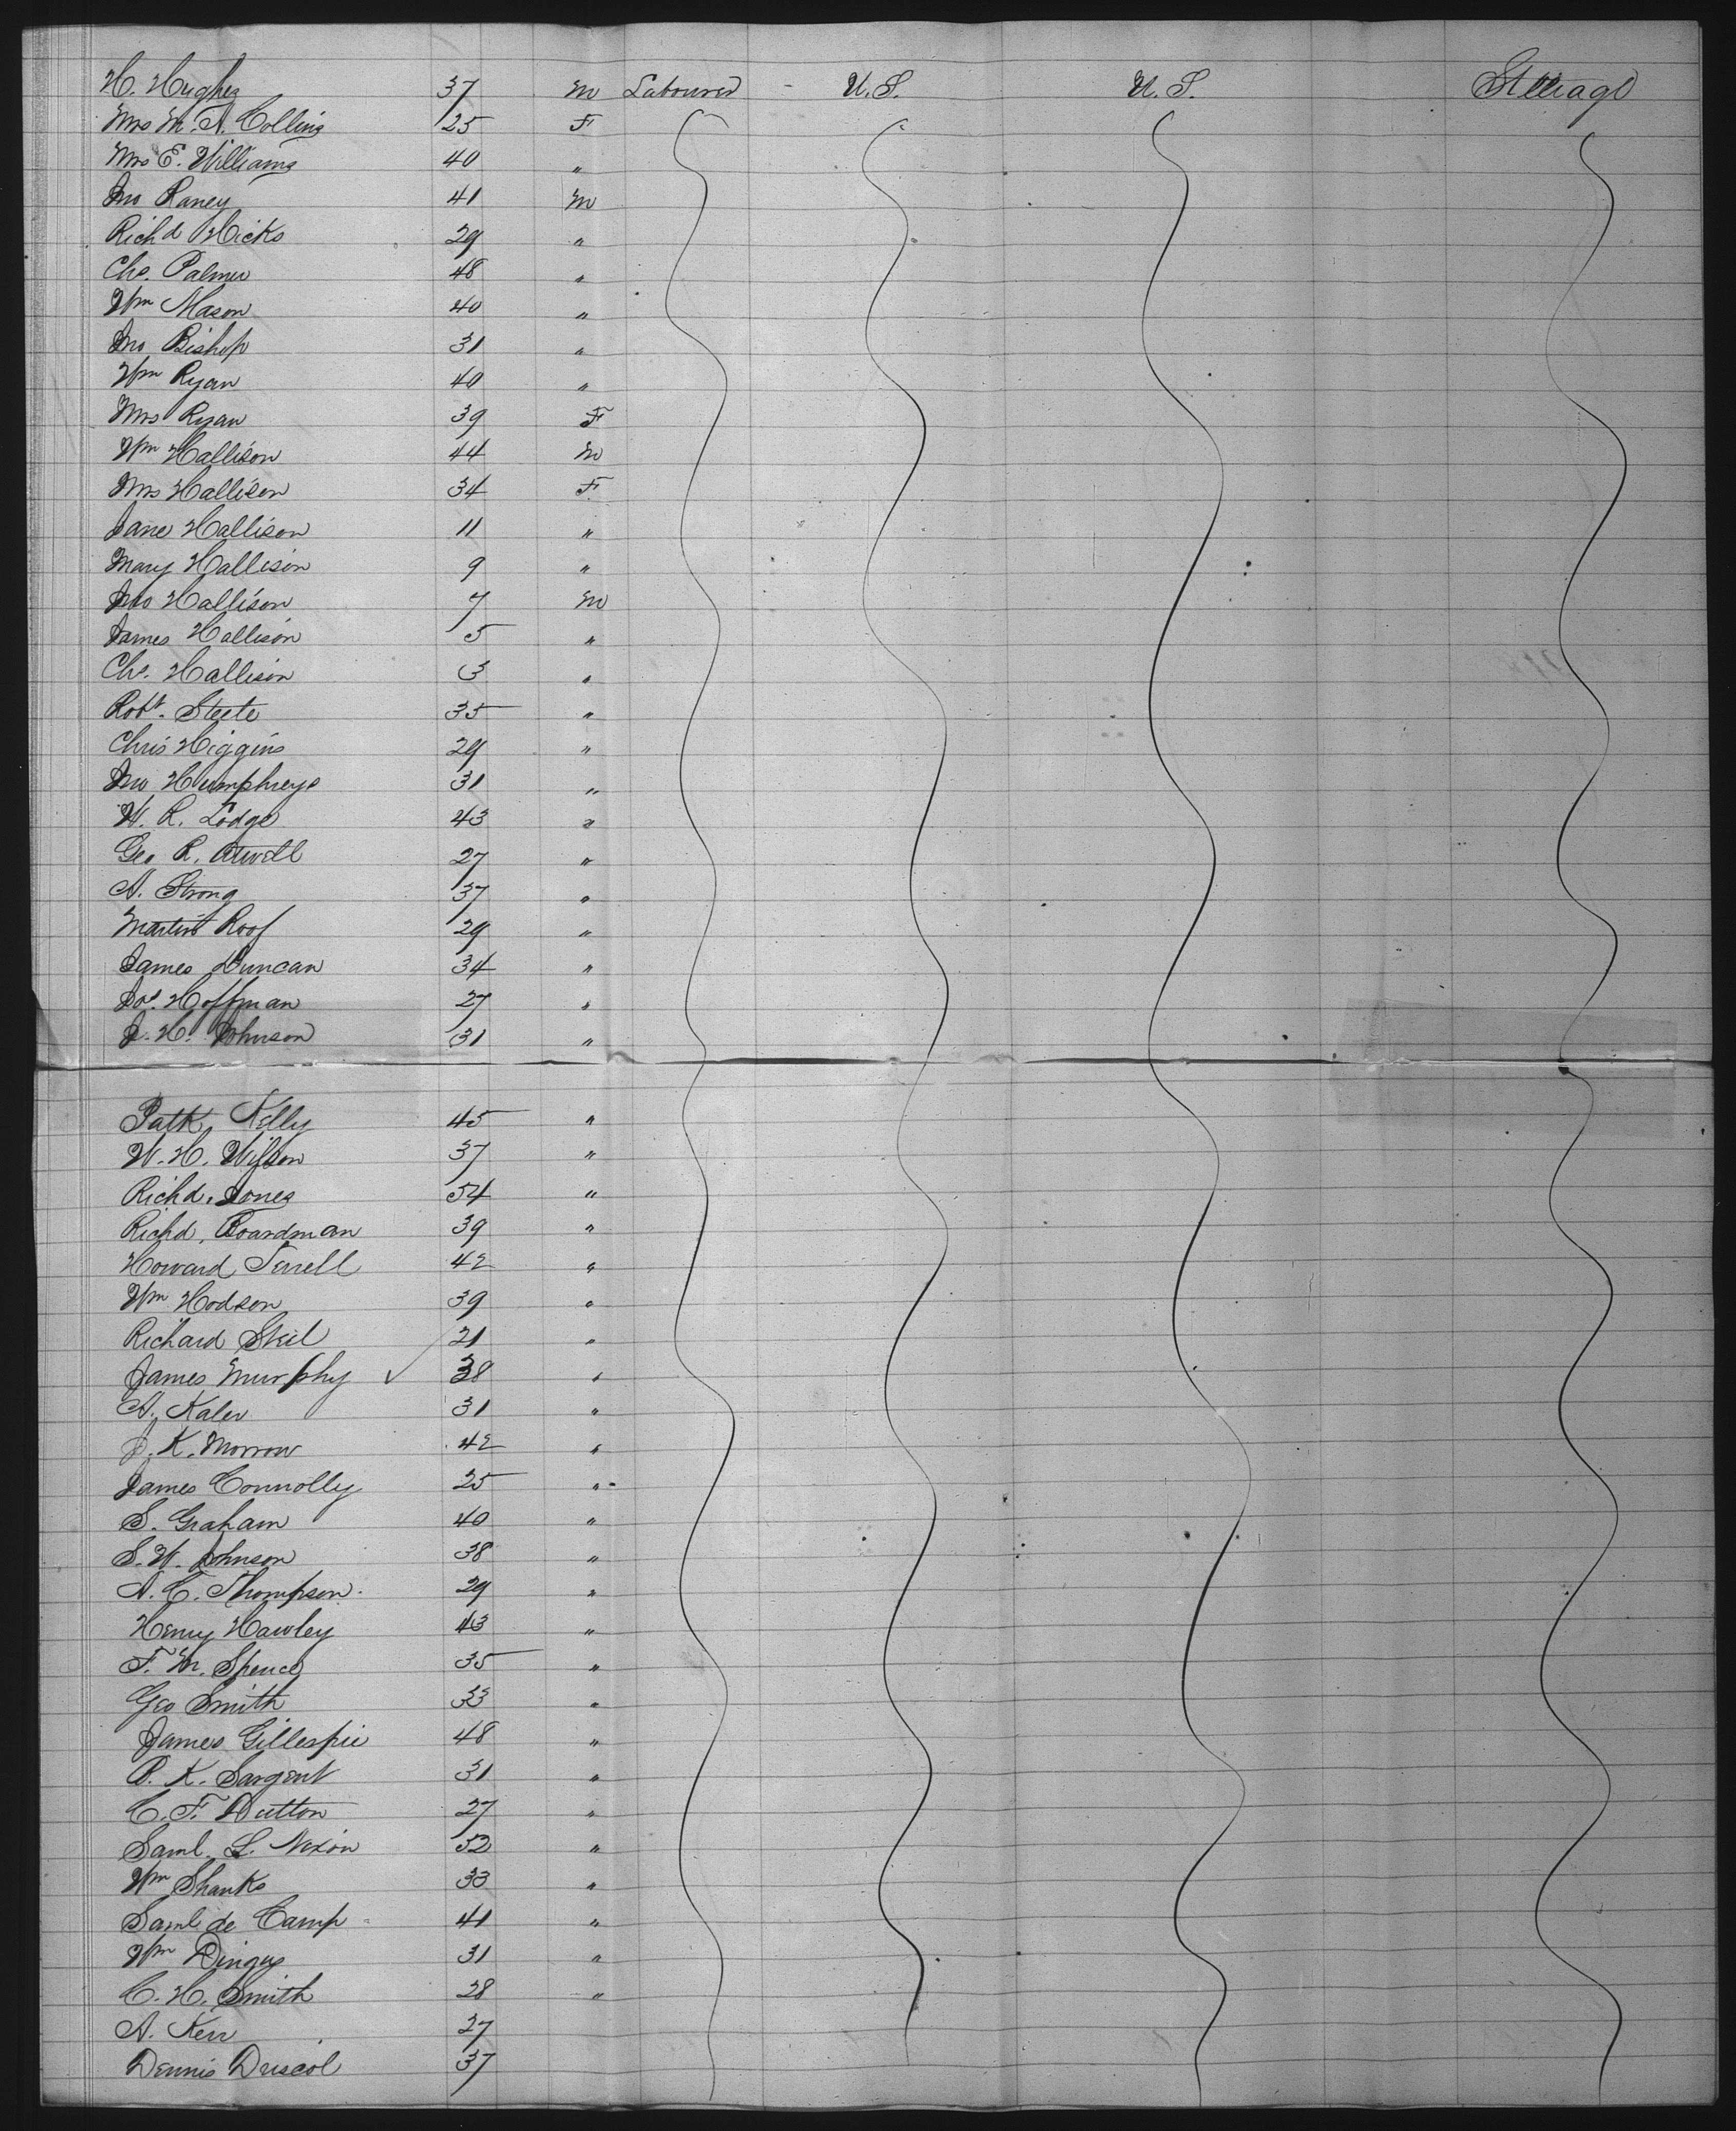 H. Hughes 37 M Labourer - U.S. U.S. Steerage
Mrs M. A. Collins 25 F
Mrs E. Williams 40 "
Jno Raney 41 M
Richd Hicks 29 "
Chs. Palmer 48 "
Wm Mason 40 "
Jno Bishop 31 "
Wm Ryan 40 "
Mrs Ryan 39 F
Wm Hallison 44 M
Mrs Hallison 34 F
Jane Hallison 11 "
Mary Hallison 9 "
Jno Hallison 7 M
James Hallison 5 "
Chs. Hallison 3 "
Robt. Steele 35 "
Chris Higgins 29 "
Jno Humphreys 31 "
W. R. Lodge 43 "
Geo R. Atwell 27 "
A. Strong 37 "
Martin Roof 29 "
James Duncan 34 "
Jos. Hoffman 27 "
J. H. Johnson 31 "
Patk Kelly 45 "
W. H. Wilson 37 "
Richd. Jones 54 "
Richd. Boardman 39 "
Howard Terrell 42 "
Wm Hodson 39 "
Richard Skil 21 "
James Murphy ✓ 38 "
A. Kaler 31 "
J. K. Morrow 42 "
James Connolly 25 "
S. Graham 40 "
S. W. Johnson 38 "
A. C. Thompson 29 "
Henry Hawley 43 "
F. M. Spence 35 "
Geo Smith 33 "
James Gillespie 48 "
R. K. Sargent 31 "
C. F. Dutton 27 "
Saml. L. Nixon 52 "
Wm Shanks 33 "
Saml de Camp 41 "
Wm Dingus 31 "
C. H. Smith 28 "
A. Kerr 27
Dennis Driscol 37